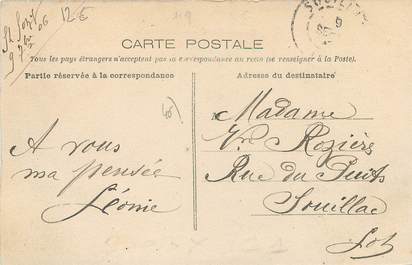 St Sozy
9 7bre 06
12 E
119
SOUILLAC
CARTE POSTALE
Tous les pays étrangers n'acceptent pas la correspondance au recto (se renseigner à la Poste).
Partie réservée à la correspondance
Adresse du destinataire
A vous
ma pensée
Léonie
Madame
Vve Rozière
Rue du Puits
Souillac
Lot